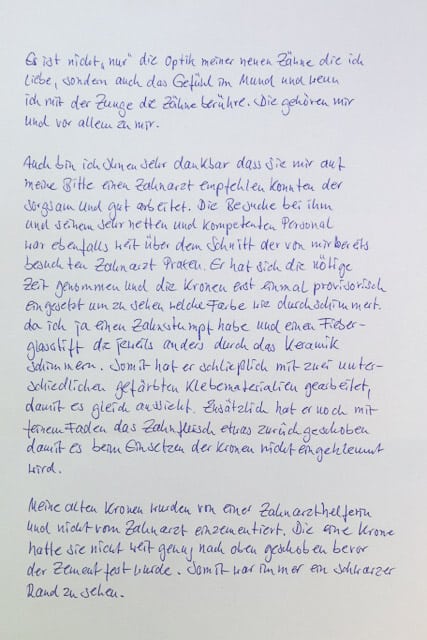 Es ist nicht „nur" die Optik meiner neuen Zähne die ich
liebe, sondern auch das Gefühl im Mund und wenn
ich mit der Zunge die Zähne berühre. Die gehören mir
und vor allem zu mir.
Auch bin ich Ihnen sehr dankbar dass sie mir auf
meine Bitte einen Zahnarzt empfehlen konnten der
sorgsam und gut arbeitet. Die Besuche bei ihm
und seinem sehr netten und kompetenten Personal
war ebenfalls weit über dem Schnitt der von mir bereits
besuchten Zahnarzt Praxen. Er hat sich die nötige
Zeit genommen und die Kronen erst einmal provisorisch
eingesetzt um zu sehen welche Farbe wie durchschimmert.
da ich ja einen Zahnstumpf habe und einen Fieber-
glasstift die jeweils anders durch das Keramik
schimmern. Somit hat er schließlich mit zwei unter-
schiedlichen gefärbten Klebematerialien gearbeitet,
damit es gleich aussieht. Zusätzlich hat er noch mit
feinem Faden das Zahnfleisch etwas zurück geschoben
damit es beim Einsetzen der Kronen nicht eingeklemmt
wird.
Meine alten Kronen wurden von einer Zahnarzthelferin
und nicht vom Zahnarzt einzementiert. Die eine Krone
hatte sie nicht weit genug nach oben geschoben bevor
der Zement fest wurde. Somit war immer ein schwarzer
Rand zu sehen.